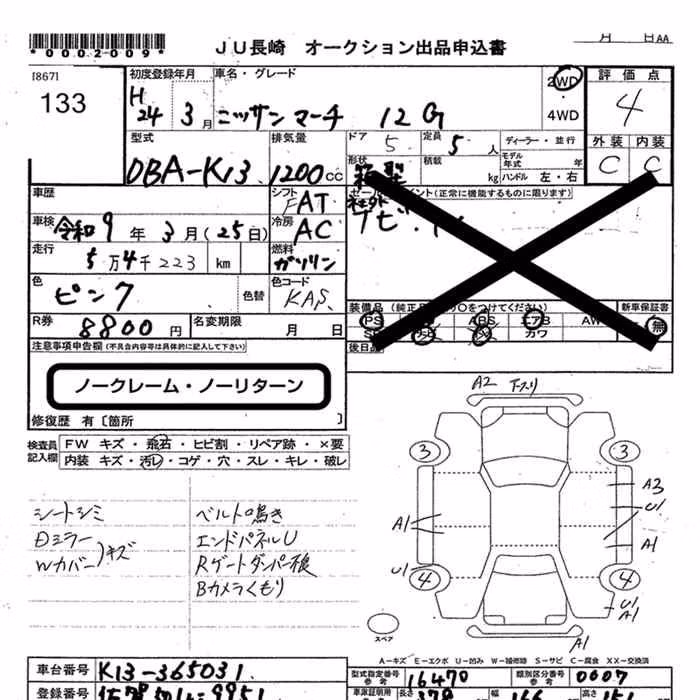 *0002009*
JU長崎 オークション出品申込書
AA
[867]
133
初度登録年月
H
24 3月
車名・グレード
ニッサン マーチ 12G
2WD
・
4WD
評価点
4
外装 内装
C C
型式
DBA-K13
排気量
1200cc
ドア
5
定員
5人
ディーラー・並行
形状
積載
kg
モデル
年式
年
ハンドル 左・右
車歴
シフト
FAT
(正常に機能するものに限ります)
社外
車検
令和9年3月(25日)
冷房
AC
走行
5万4千223 km
燃料
ガソリン
色
ピンク
色替
色コード
KAS
装備品
ABS
エアB
AW
カワ
新車保証書
無
R券
8800円
名変期限
月 日
後日品
注意事項申告欄 (不具合内容等は具体的に記入して下さい)
ノークレーム・ノーリターン
修復歴 有〔箇所 〕
検査員
記入欄
FW キズ・飛石・ヒビ割・リペア跡・×要
内装 キズ・汚レ・コゲ・穴・スレ・キレ・破レ
シートシミ
Dミラー
Wカバー
キズ
ベルト鳴き
エンドパネルU
Rゲートダンパー
Bカメラくもり
A2 下スリ
3 3
A3
U1
A1
A1
U1
4 4
U1
A1
スペア
A1
A-キズ E-エクボ U-凹み W-補修跡 S-サビ C-腐食 XX-交換済
車台番号
K13-365031
型式指定番号
参考
16470
類別区分番号
参考
0007
登録番号